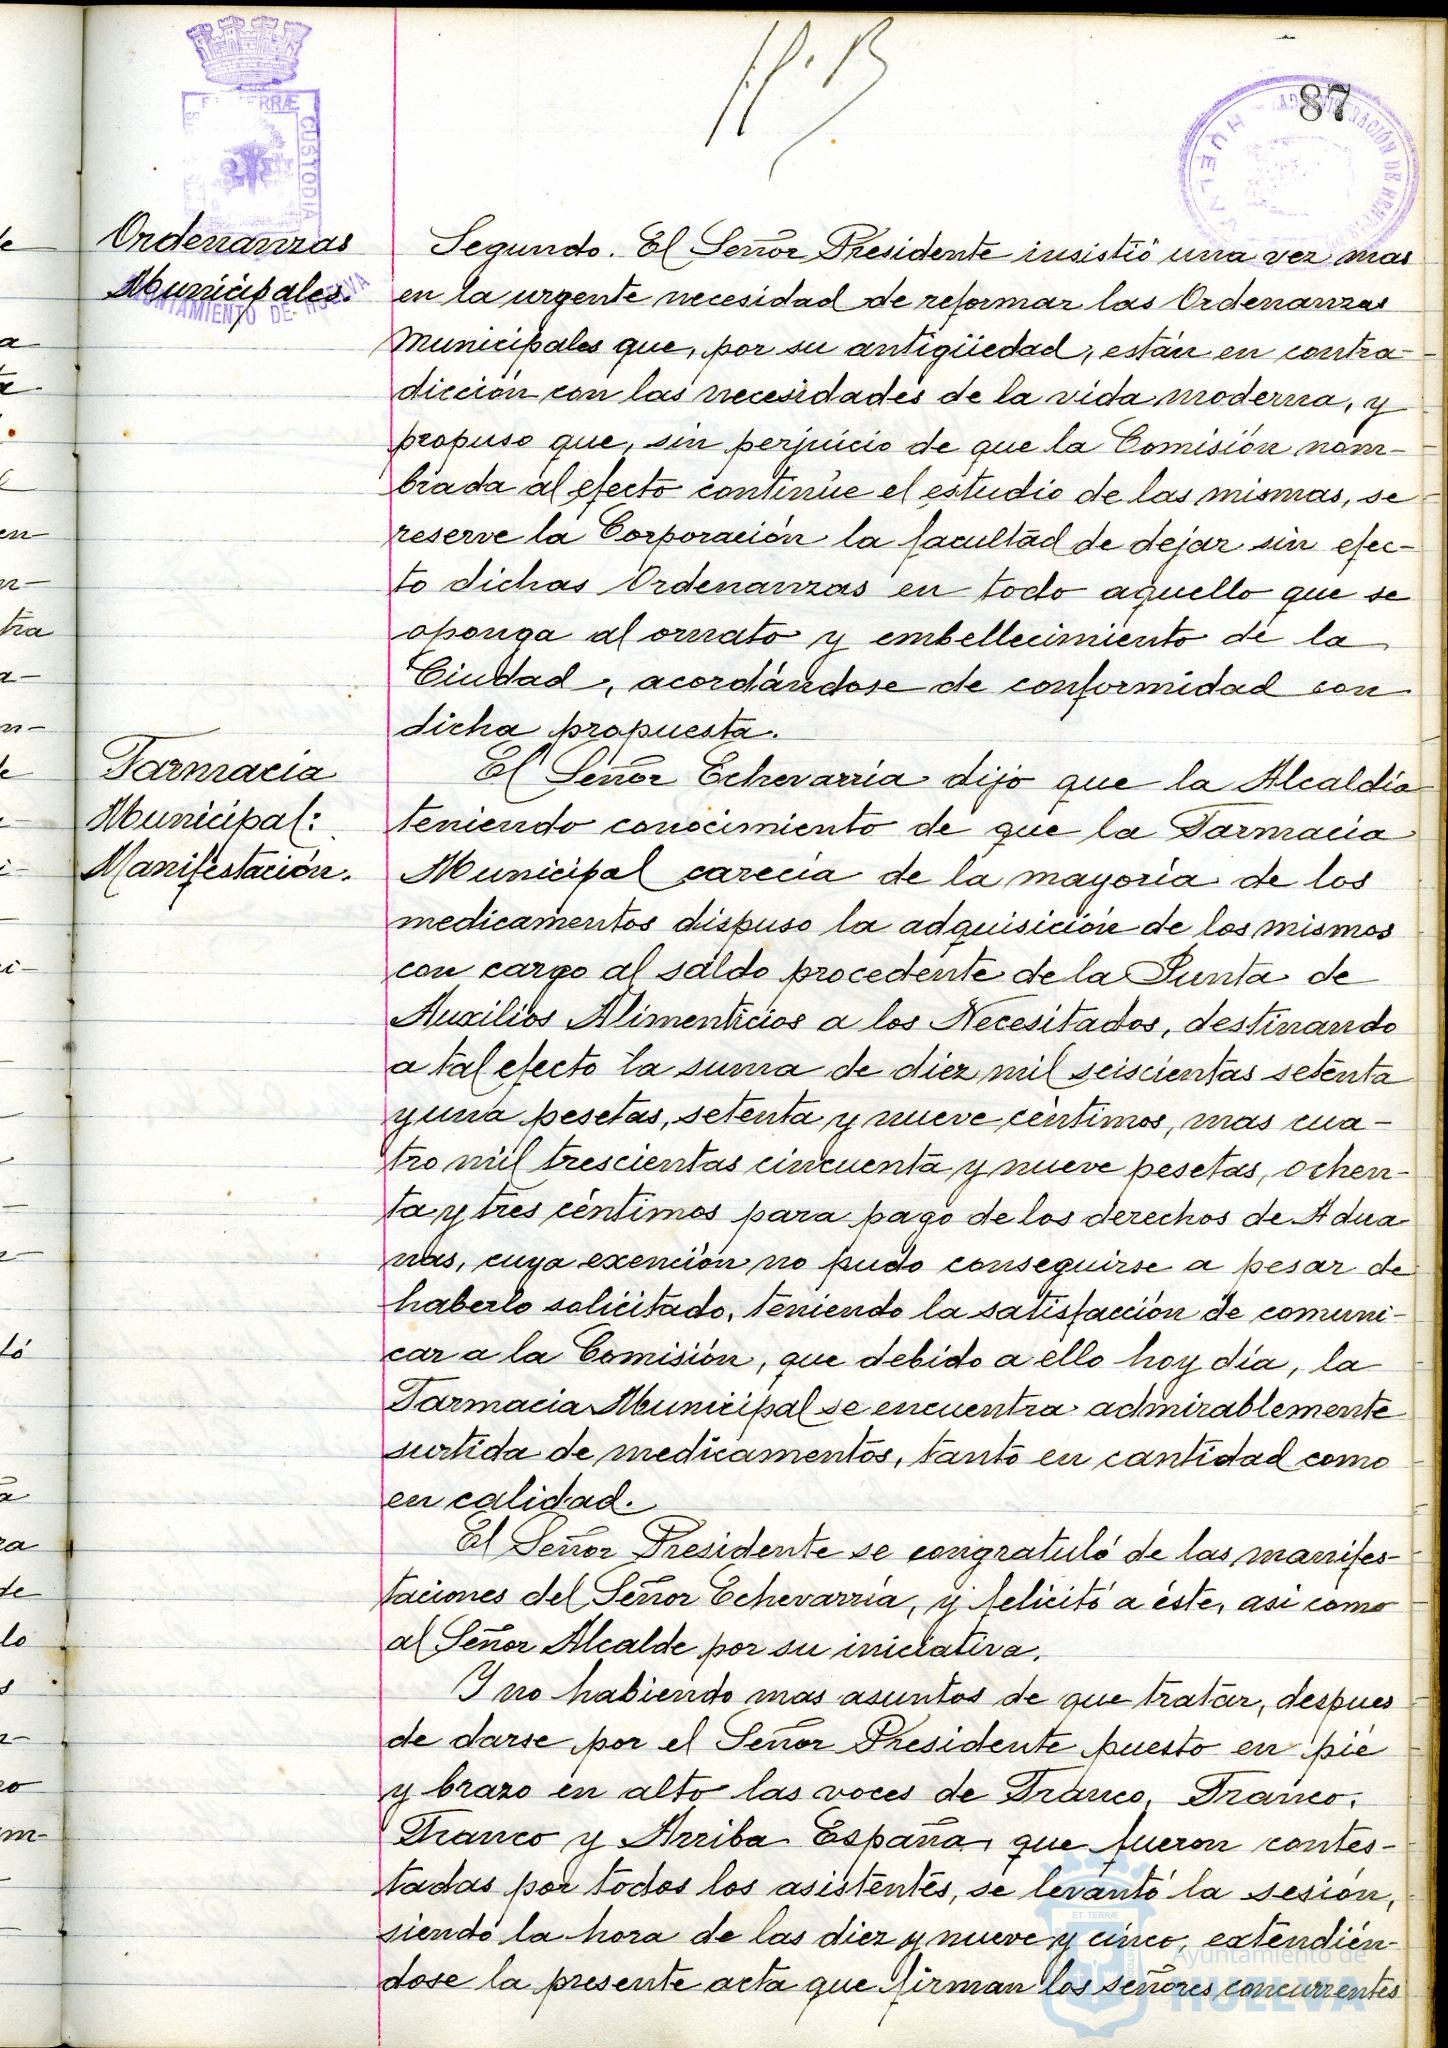 87
TERRÆ
CUSTODIA
AYUNTAMIENTO DE HUELVA
HUELVA
Ordenanzas
Municipales.
Segundo. El Señor Presidente insistió una vez mas
en la urgente necesidad de reformar las Ordenanzas
Municipales que, por su antigüedad, están en contra-
dicción con las necesidades de la vida moderna, y
propuso que, sin perjuicio de que la Comisión nom-
brada al efecto continúe el estudio de las mismas, se
reserve la Corporación la facultad de dejar sin efec-
to dichas Ordenanzas en todo aquello que se
oponga al ornato y embellecimiento de la
Ciudad, acordándose de conformidad con
dicha propuesta.
Farmacia
Municipal:
Manifestación.
El Señor Echevarría dijo que la Alcaldía
teniendo conocimiento de que la Farmacia
Municipal carecía de la mayoría de los
medicamentos dispuso la adquisición de los mismos
con cargo al saldo procedente de la Junta de
Auxilios Alimenticios a los Necesitados, destinando
a tal efecto la suma de diez mil seiscientas setenta
y una pesetas, setenta y nueve céntimos, mas cua-
tro mil trescientas cincuenta y nueve pesetas, ochen-
ta y tres céntimos para pago de los derechos de Adua
nas, cuya exención no pudo conseguirse a pesar de
haberlo solicitado, teniendo la satisfacción de comuni-
car a la Comisión, que debido a ello hoy día, la
Farmacia Municipal se encuentra admirablemente
surtida de medicamentos, tanto en cantidad como
en calidad.
El Señor Presidente se congratuló de las manifes-
taciones del Señor Echevarría, y felicitó a éste, asi como
al Señor Alcalde por su iniciativa.
Y no habiendo mas asuntos de que tratar, despues
de darse por el Señor Presidente puesto en pié
y brazo en alto las voces de Franco, Franco,
Franco y Arriba España, que fueron contes-
tadas por todos los asistentes, se levantó la sesión,
siendo la hora de las diez y nueve y cinco, extendién-
dose la presente acta que firman los señores concurrentes
ET TERRÆ
Ayuntamiento de
HUELVA